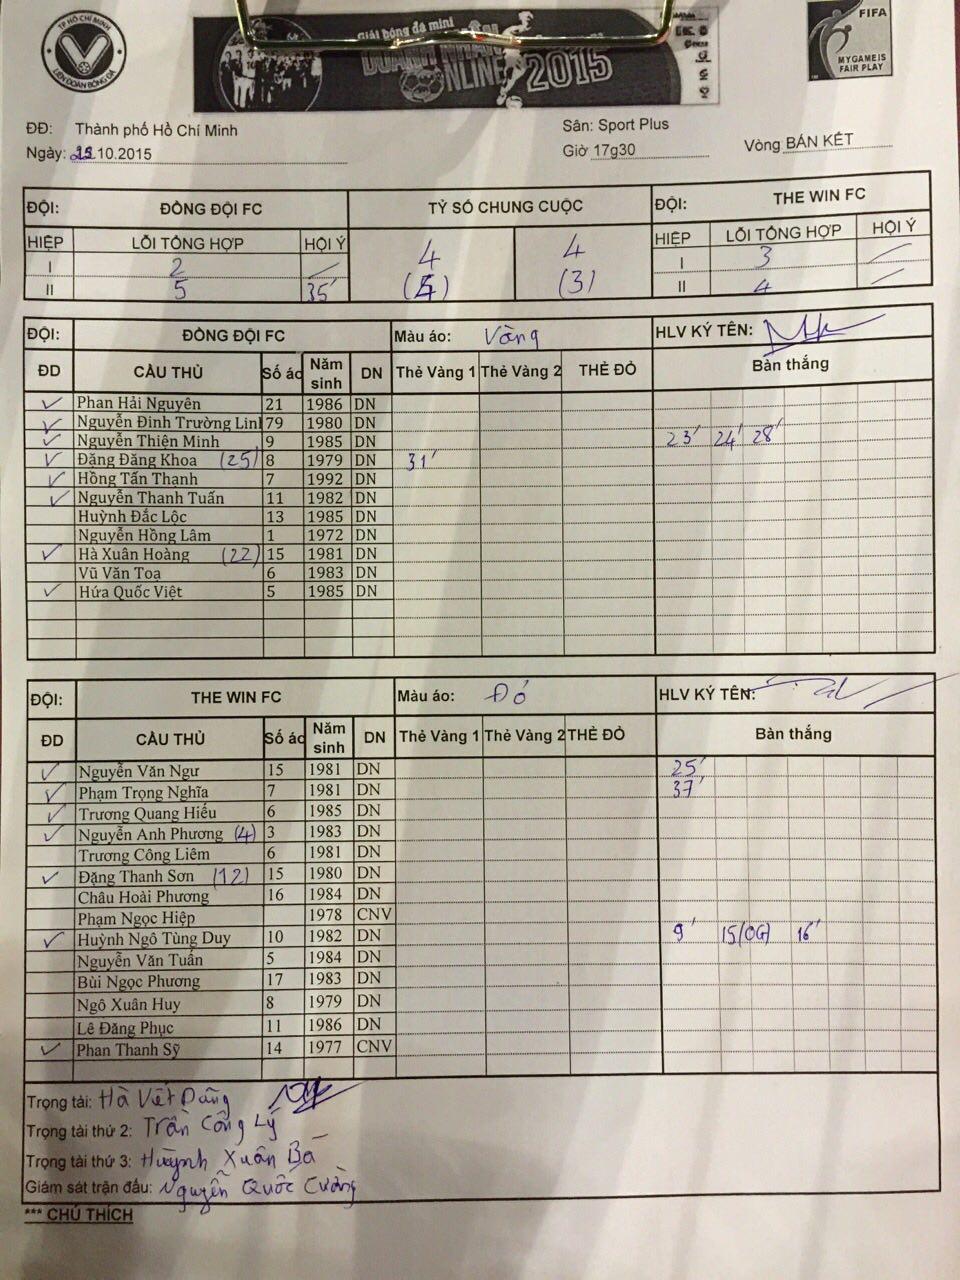 TP HỒ CHÍ MINH
LIÊN ĐOÀN BÓNG ĐÁ
Giải bóng đá mini
DOANH NHÂN
ONLINE 2015
FIFA
MY GAME IS
FAIR PLAY
ĐĐ: Thành phố Hồ Chí Minh
Sân: Sport Plus
Ngày: 10.2015
Giờ 17g30
Vòng BÁN KẾT
ĐỘI: ĐỒNG ĐỘI FC TỶ SỐ CHUNG CUỘC ĐỘI: THE WIN FC
HIỆP LỖI TỔNG HỢP HỘI Ý 4 4 HIỆP LỖI TỔNG HỢP HỘI Ý
I 2 / I 3 /
II 5 35' (3) II 4 /
ĐỘI: ĐỒNG ĐỘI FC Màu áo: Vàng HLV KÝ TÊN:
ĐD CẦU THỦ Số áo Năm sinh DN Thẻ Vàng 1 Thẻ Vàng 2 THẺ ĐỎ Bàn thắng
✓ Phan Hải Nguyên 21 1986 DN
✓ Nguyễn Đinh Trường Linh 79 1980 DN
✓ Nguyễn Thiện Minh 9 1985 DN 23' 24' 28'
✓ Đặng Đăng Khoa (25) 8 1979 DN 31'
✓ Hồng Tấn Thạnh 7 1992 DN
✓ Nguyễn Thanh Tuấn 11 1982 DN
Huỳnh Đắc Lộc 13 1985 DN
Nguyễn Hồng Lâm 1 1972 DN
✓ Hà Xuân Hoàng (22) 15 1981 DN
Vũ Văn Toạ 6 1983 DN
✓ Hứa Quốc Việt 5 1985 DN
ĐỘI: THE WIN FC Màu áo: Đỏ HLV KÝ TÊN:
ĐD CẦU THỦ Số áo Năm sinh DN Thẻ Vàng 1 Thẻ Vàng 2 THẺ ĐỎ Bàn thắng
✓ Nguyễn Văn Ngư 15 1981 DN 25'
✓ Phạm Trọng Nghĩa 7 1981 DN 37'
✓ Trương Quang Hiếu 6 1985 DN
✓ Nguyễn Anh Phương (4) 3 1983 DN
Trương Công Liêm 6 1981 DN
✓ Đặng Thanh Sơn (12) 15 1980 DN
Châu Hoài Phương 16 1984 DN
Phạm Ngọc Hiệp 1978 CNV
✓ Huỳnh Ngô Tùng Duy 10 1982 DN 9' 15(OG) 16'
Nguyễn Văn Tuấn 5 1984 DN
Bùi Ngọc Phương 17 1983 DN
Ngô Xuân Huy 8 1979 DN
Lê Đăng Phục 11 1986 DN
✓ Phan Thanh Sỹ 14 1977 CNV
Trọng tài: Hà Viết Dũng
Trọng tài thứ 2: Trần Công Lý
Trọng tài thứ 3: Huỳnh Xuân Bá
Giám sát trận đấu: Nguyễn Quốc Cường
*** CHÚ THÍCH